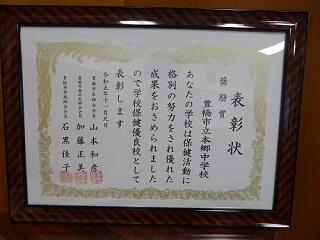 表彰状
奨励賞
豊橋市立本郷中学校
あなたの学校は保健活動に
格別の努力をされ優れた
成果をおさめられました
ので学校保健優良校として
表彰します
令和五年十一月九日
豊橋市医師会会長 山本和彦
豊橋市歯科医師会会長 加藤正美
豊橋市薬剤師会会長 石黒佳子